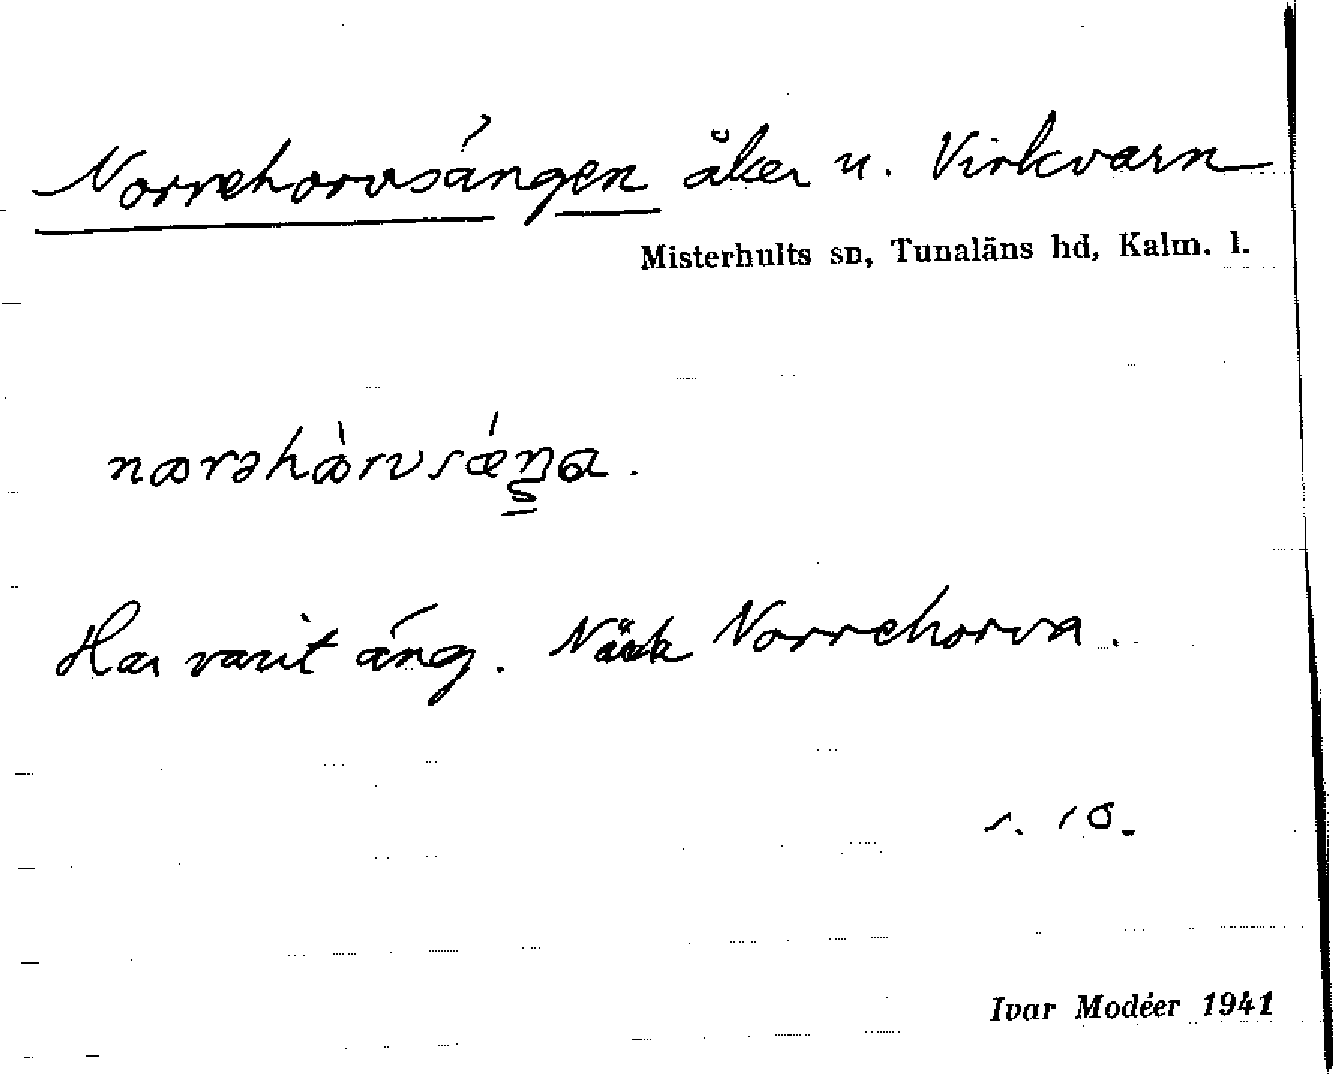 Norrehorvsängen åker u. Virkvarn
Misterhults sn, Tunaläns hd, Kalm. l.
Har varit äng. Norrehorva.
s. 10.
Ivar Modéer 1941